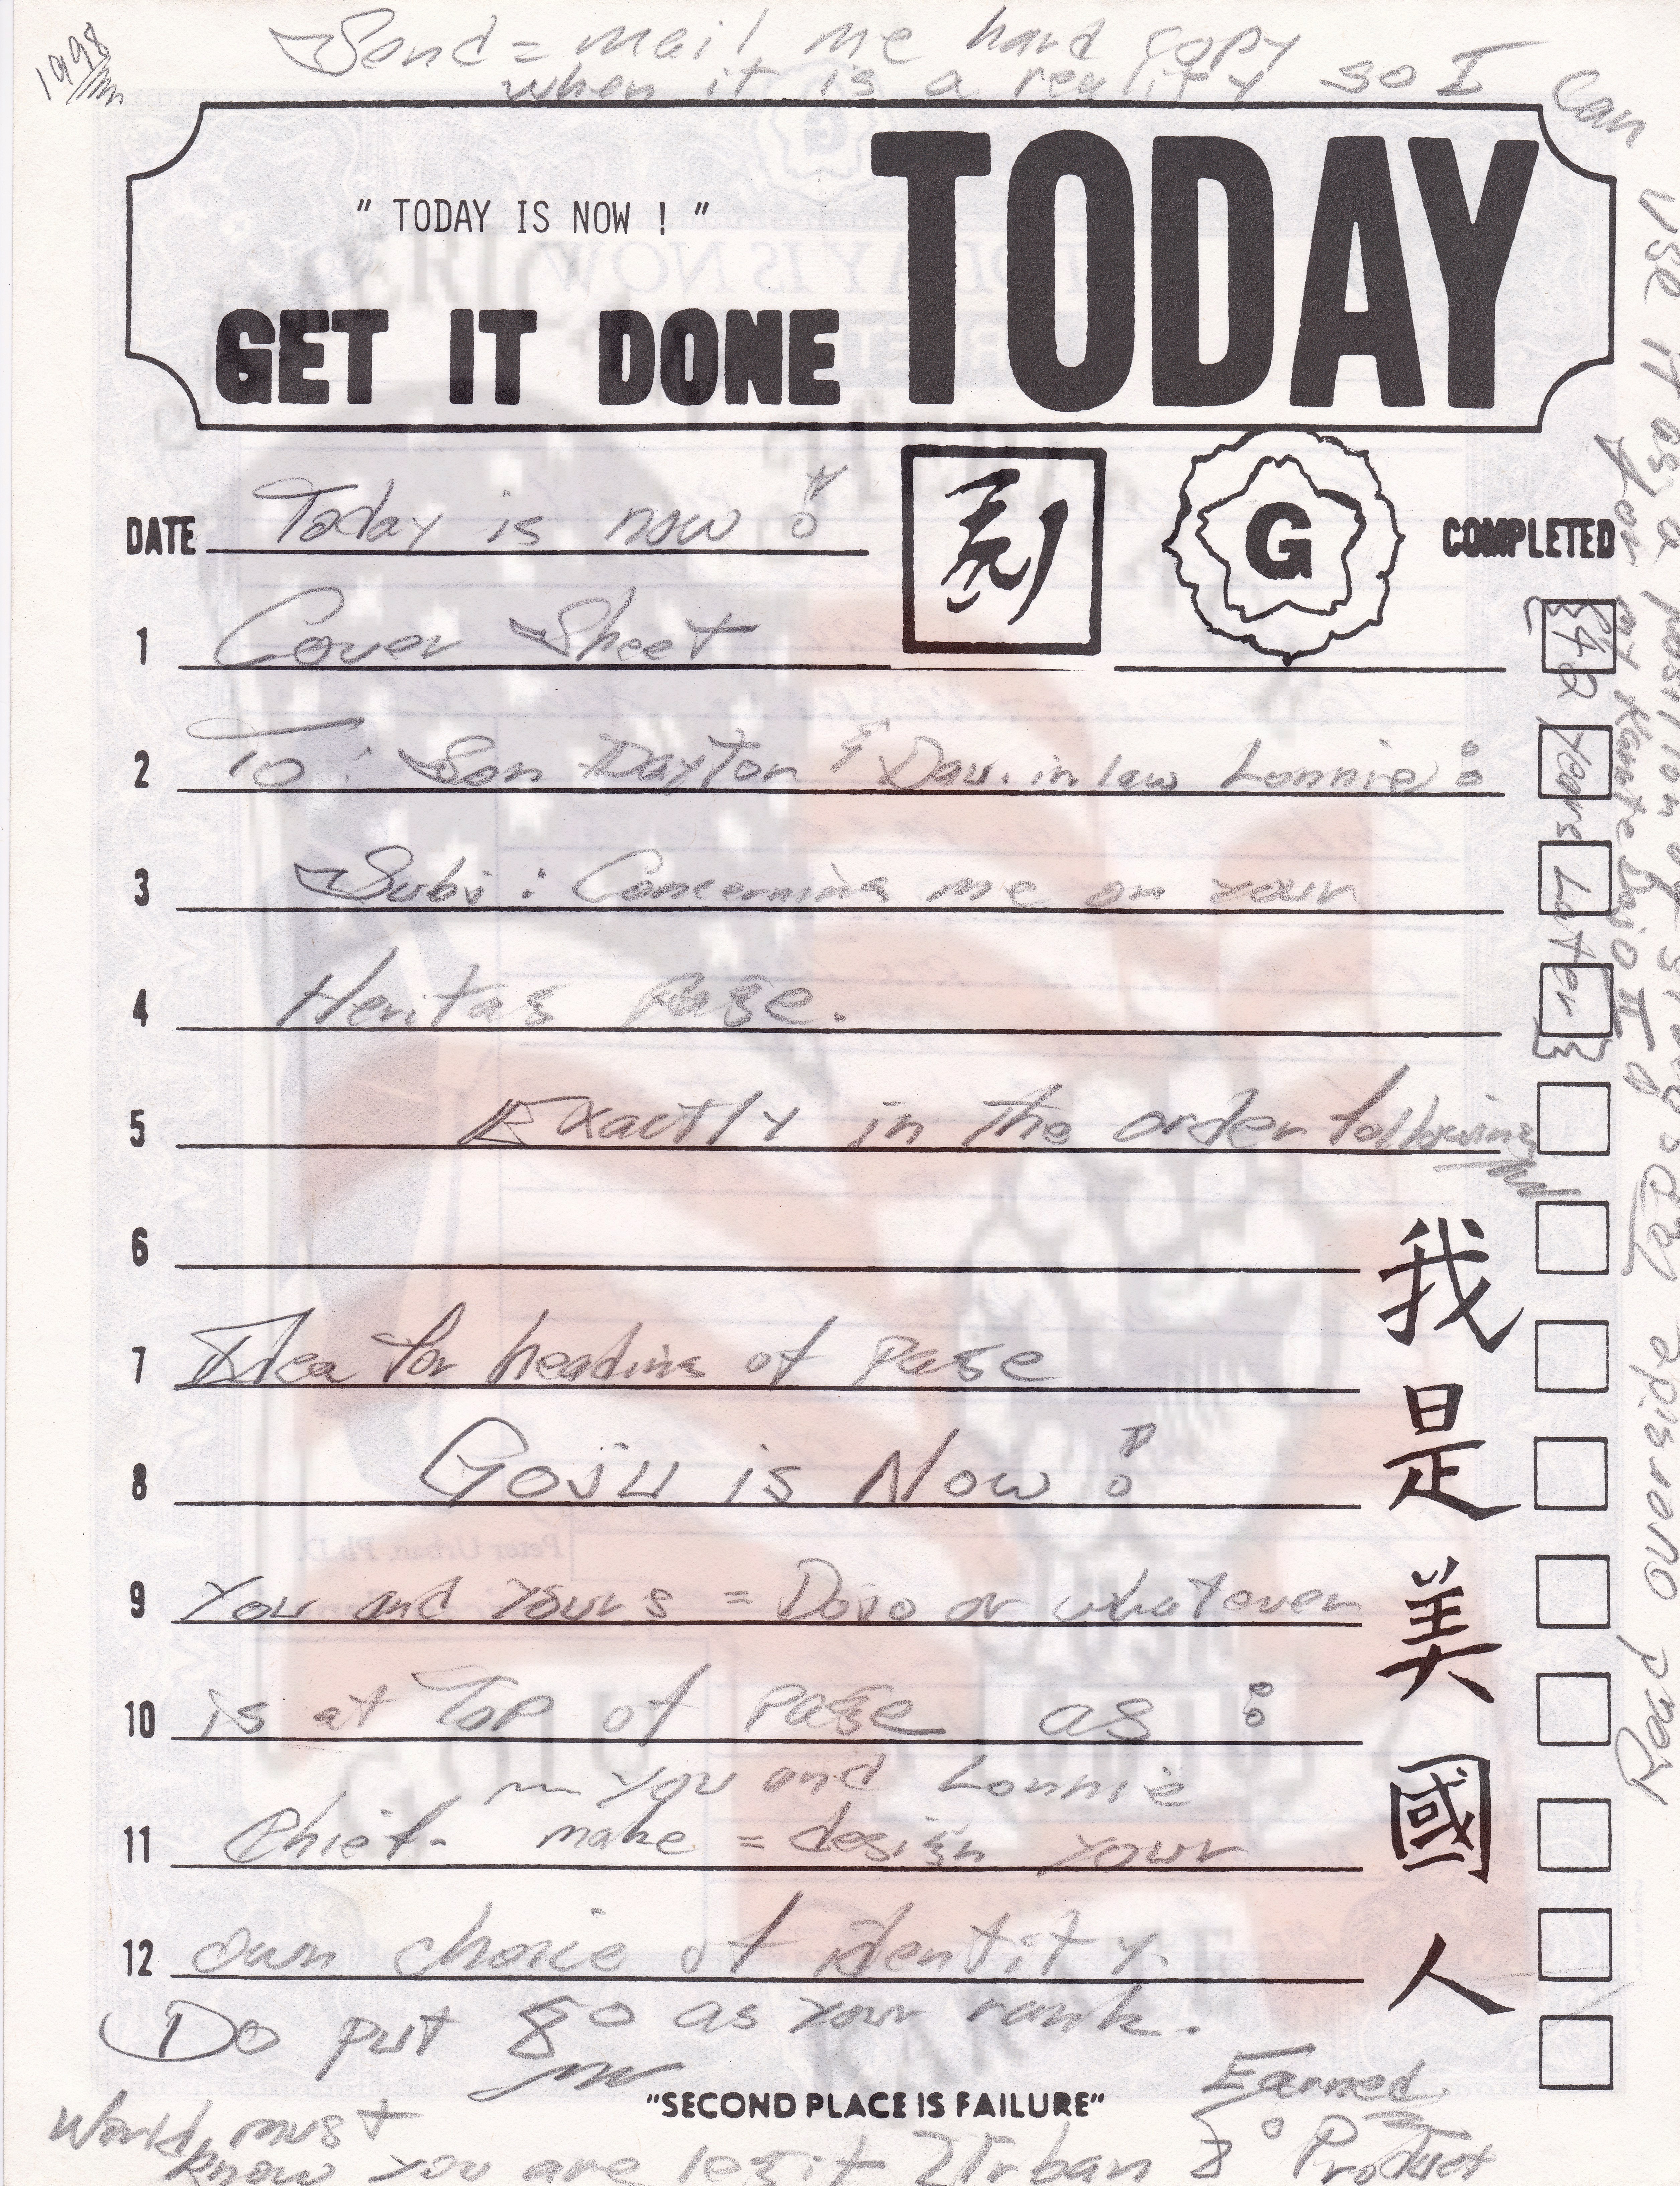 1998
Send = mail me hard copy
when it is a reality so I can
use it as a position of strength
for my Karate Dojo II
TODAY
" TODAY IS NOW ! "
GET IT DONE
DATE Today is now !
G
COMPLETED
1 Cover Sheet
{42 Years Later}
2 To: Son Dayton & Dau. in law Lonnie :
3 Subj : Concerning me on your
4 Heritag Page.
5 Exactly in the order following
6
7 Idea for heading of page
8 Goju is Now !
9 You and Yours = Dojo or whatever
10 is at Top of page as :
you and Lonnie
11 Chief. make = design your
12 own choice of identity.
Do put 8° as your rank.
我是美國人
Read overside
"SECOND PLACE IS FAILURE"
Earned
World must
know you are legit Urban 8° Product
Peter Urban, Ph.D.